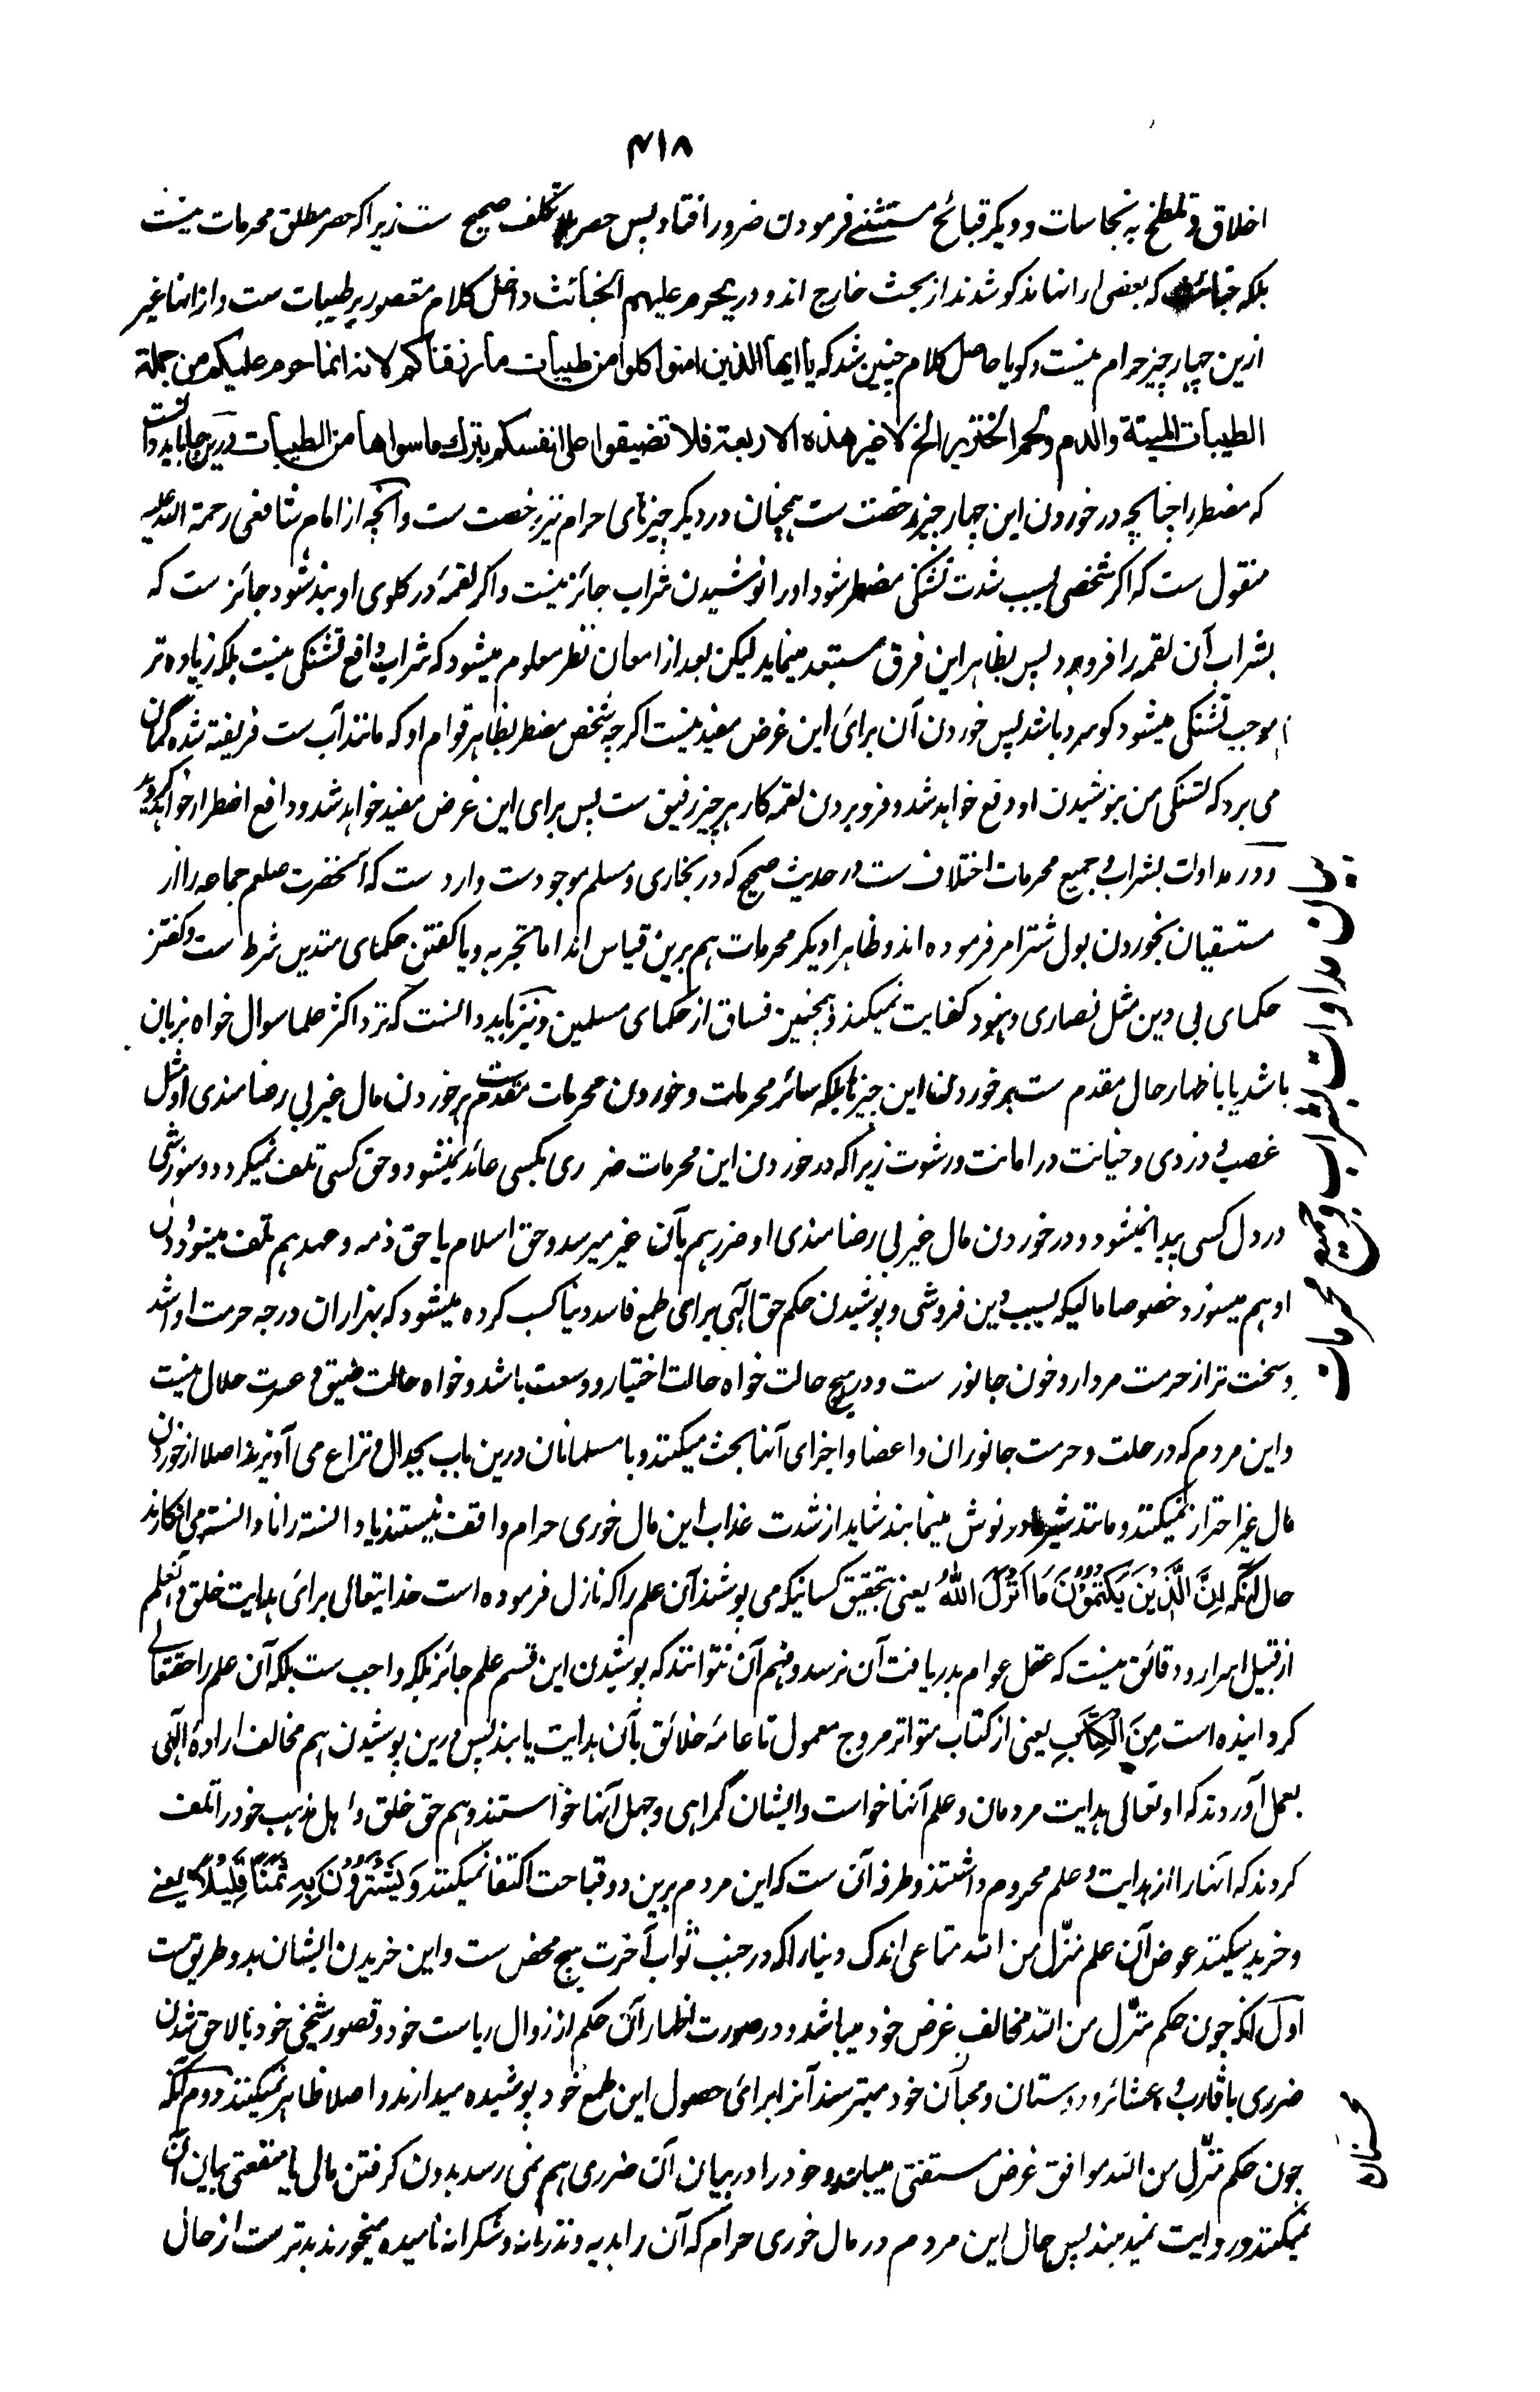 ۴۱۸
اخلاق و تلطخ به نجاسات و دیگر قبائح مستثنے فرمودن ضرور افتاد پس حصر بلا تکلف صحیح ست زیرا که حصر مطلق محرمات نیست
بلکه خبائث که بعضی از انها مذکور شدند از بحث خارج اند و در یحرم علیهم الخبائث داخل کلام مقصور بر طیبات ست و از انها غیر
ازین چهار چیز حرام نیست و کویا حاصل کلام چنین شد که یا ایها الذین امنوا کلوا من طیبات ما رزقناکم لانه انما حرم علیکم من جملة
الطیبات المیتة والدم ولحم الخنزیر الخ لا غیر هذه الاربعة فلا تضیقوا علی انفسکم بترک ما سواها من الطیبات درین جا باید دانست
که مضطر را چنانچه در خوردن این چهار چیز رخصت ست همچنان در دیگر چیزهای حرام نیز رخصت ست و آنچه از امام شافعی رحمة الله علیه
منقول ست که اگر شخصی بسبب شدت تشنگی مضطر شود او را نوشیدن شراب جائز نیست و اگر لقمهٔ در کلوی او بند شود جائز ست که
بشراب آن لقمه را فرو برد پس بظاهر این فرق مستبعد مینماید لیکن بعد از امعان نظر معلوم میشود که شراب دافع تشنگی نیست بلکه زیاده تر
موجب تشنگی میشود کو سرد باشد پس خوردن آن برای این غرض مفید نیست اگرچه شخص مضطر بظاهر قوام او که مانند آب ست فریفته شده گمان
می برد که تشنگی من بنوشیدن او دفع خواهد شد و فرو بردن لقمه کار هر چیز رقیق ست پس برای این غرض مفید خواهد شد و دافع اضطرار خواهد گردید
و در مداوات بشراب و جمیع محرمات اختلاف ست در حدیث صحیح که در بخاری و مسلم موجودست وارد ست که آنحضرت صلعم جماعه را از
مستسقیان بخوردن بول شتر امر فرموده اند و ظاهرا دیگر محرمات هم برین قیاس اند اما تجربه و یا گفتن حکمای متدین شرط ست و گفتن
حکمای بی دین مثل نصاری و هنود کفایت نمیکند و همچنین فساق از حکمای مسلمین و نیز باید دانست که نزد اکثر علما سوال خواه بزبان
باشد یا باظهار حال مقدم ست بر خوردن این چیزها بلکه سائر محرمات و خوردن محرمات مقدم ست بر خوردن مال غیر بی رضامندی او مثل
غصب و دزدی و خیانت در امانت و رشوت زیرا که در خوردن این محرمات ضرری بکسی عائد نمیشود و حق کسی تلف نمیگردد و سوزشی
در دل کسی پیدا نمیشود و در خوردن مال غیر بی رضامندی او ضرر هم بآن غیر میرسد و حق اسلام یا حق ذمه و عهد هم تلف میشود و دل
او هم میسوزد خصوصا مالیکه بسبب دین فروشی و پوشیدن حکم حق الهی برای طمع فاسد دنیا کسب کرده میشود که بهزاران درجه حرمت او اشد
و سخت تر از حرمت مردار و خون جانور ست و در هیچ حالت خواه حالت اختیار و وسعت باشد و خواه حالت ضیق و عسرت حلال نیست
و این مردم که در حلت و حرمت جانوران و اعضا و اجزای آنها بحث میکنند و با مسلمانان درین باب بجدال و نزاع می آویزند اصلا از خوردن
مال غیر احتراز نمیکنند و مانند شیر مادر نوش مینمایند شاید از شدت عذاب این مال خوری حرام واقف نیستند یا دانسته را نا دانسته می انگارند
حال آنکه اِنَّ الَّذِیْنَ یَکْتُمُوْنَ مَا اَنْزَلَ اللّٰهُ یعنی بتحقیق کسانیکه می پوشند آن علم را که نازل فرموده است خدایتعالی برای هدایت خلق و آن علم
از قبیل اسرار و دقائق نیست که عقل عوام بدریافت آن نرسد و فهم آن نتوانند که پوشیدن این قسم علم جائز بلکه واجب ست بلکه آن علم را حقتعالی
کردانیده است مِنَ الْکِتَابِ یعنی از کتاب متواتر مروج معمول تا عامهٔ خلائق بآن هدایت یابند پس درین پوشیدن هم مخالف ارادهٔ الهی
بعمل آوردند که او تعالی هدایت مردمان و علم آنها خواست و ایشان گمراهی و جهل آنها خواستند و هم حق خلق و اهل مذهب خود را تلف
کردند که آنها را از هدایت و علم محروم داشتند و طرفه آن ست که این مردم برین دو قباحت اکتفا نمیکنند وَیَشْتَرُوْنَ بِهٖ ثَمَنًا قَلِیْلًا یعنے
و خرید میکنند عوض آن علم منزل من الله متاعی اندک دنیا را که در جنب ثواب آخرت هیچ محض ست و این خریدن ایشان بدو طریق ست
اول آنکه چون حکم منزل من الله مخالف غرض خود میباشد و در صورت اظهار آن حکم از زوال ریاست خود و قصور شیخی خود یا لاحق شدن
ضرری باقارب و عشائر و دوستان و محبان خود میترسند آنرا برای حصول این طمع خود پوشیده میدارند و اصلا ظاهر نمیکنند دوم آنکه
چون حکم منزل من الله موافق غرض مستفتی میباشد و خود را در بیان آن ضرری هم نمی رسد بدون گرفتن مالی یا منفعتی بیان آن
نمیکنند و روایت نمیدهند پس حال این مردم در مال خوری حرام که آن را هدیه و نذرانه و شکرانه نامیده میخورند بدتر ست از حال
بیان مداوات بشراب و جمیع محرمات